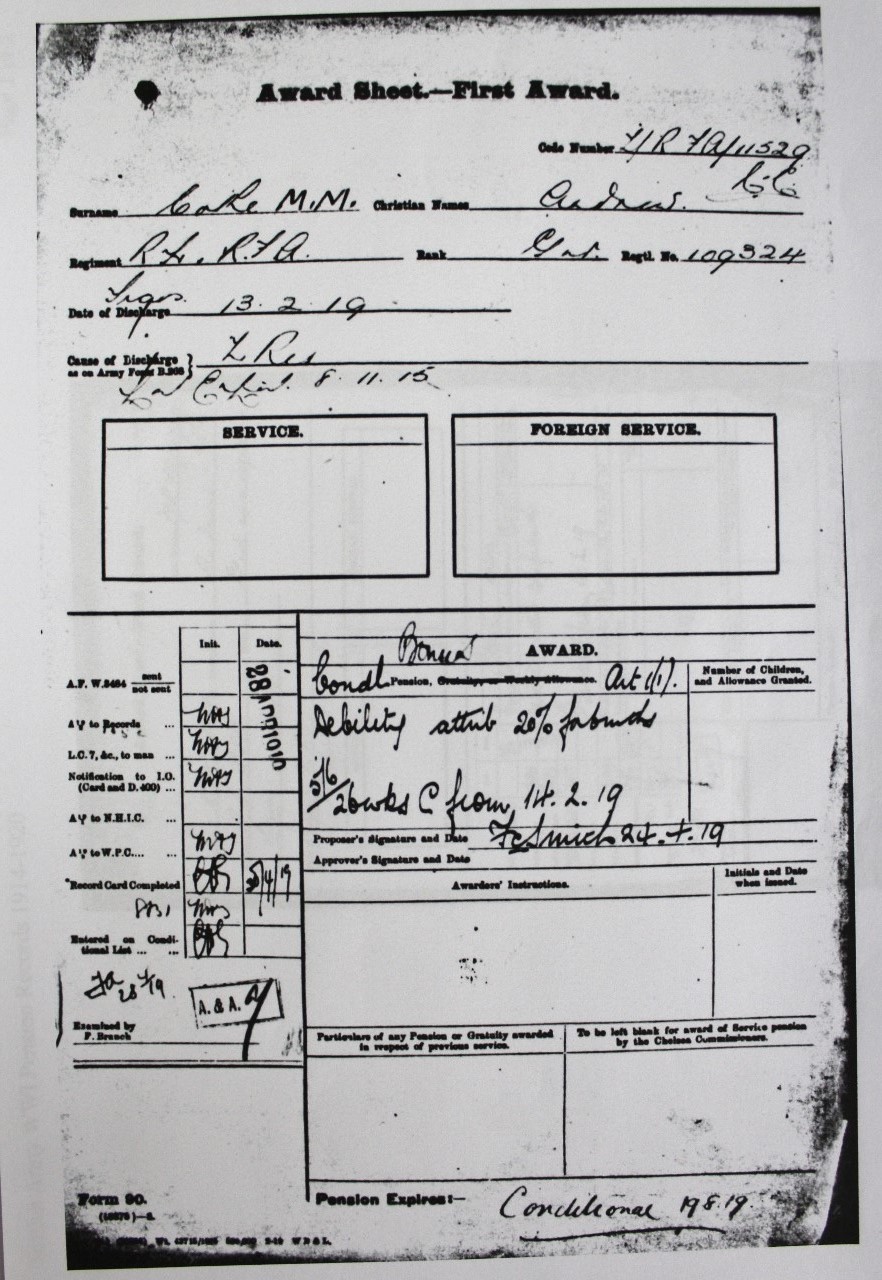 Award Sheet.—First Award.
Code Number Z/R FA/11529
Surname M.M. Christian Names Andrew.
Regiment R.F.A. Rank Gnr. Regtl. No. 109324
Date of Discharge 13. 2. 19
Cause of Discharge as on Army Form B.268 } Z Res
8. 11. 15
SERVICE. FOREIGN SERVICE.
Init. Date.
Bonus AWARD.
A.F. W.3464 sent not sent
Condl Pension, Gratuity, or Weekly Allowance. Art 1(1).
Number of Children, and Allowance Granted.
28 APR 1919
A to Records ...
Debility attrib 20%
L.C. 7, &c., to man ...
Notification to I.O. (Card and D. 400) ...
5/6 26 wks from 14. 2. 19
A to N.H.I.C. ...
Proposer's Signature and Date 24. 4. 19
A to W.P.C.... ...
Approver's Signature and Date
Record Card Completed /4/19
Awarders' Instructions.
Initials and Date when issued.
Entered on Conditional List ... ...
A. & A.
Examined by F. Branch
Particulars of any Pension or Gratuity awarded in respect of previous service.
To be left blank for award of Service pension by the Chelsea Commissioners.
Form 90.
Pension Expires:— Conditional 19.8.19.